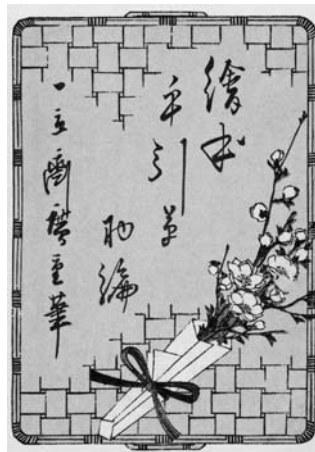 繪本
手引草
初編
一立齋廣重筆